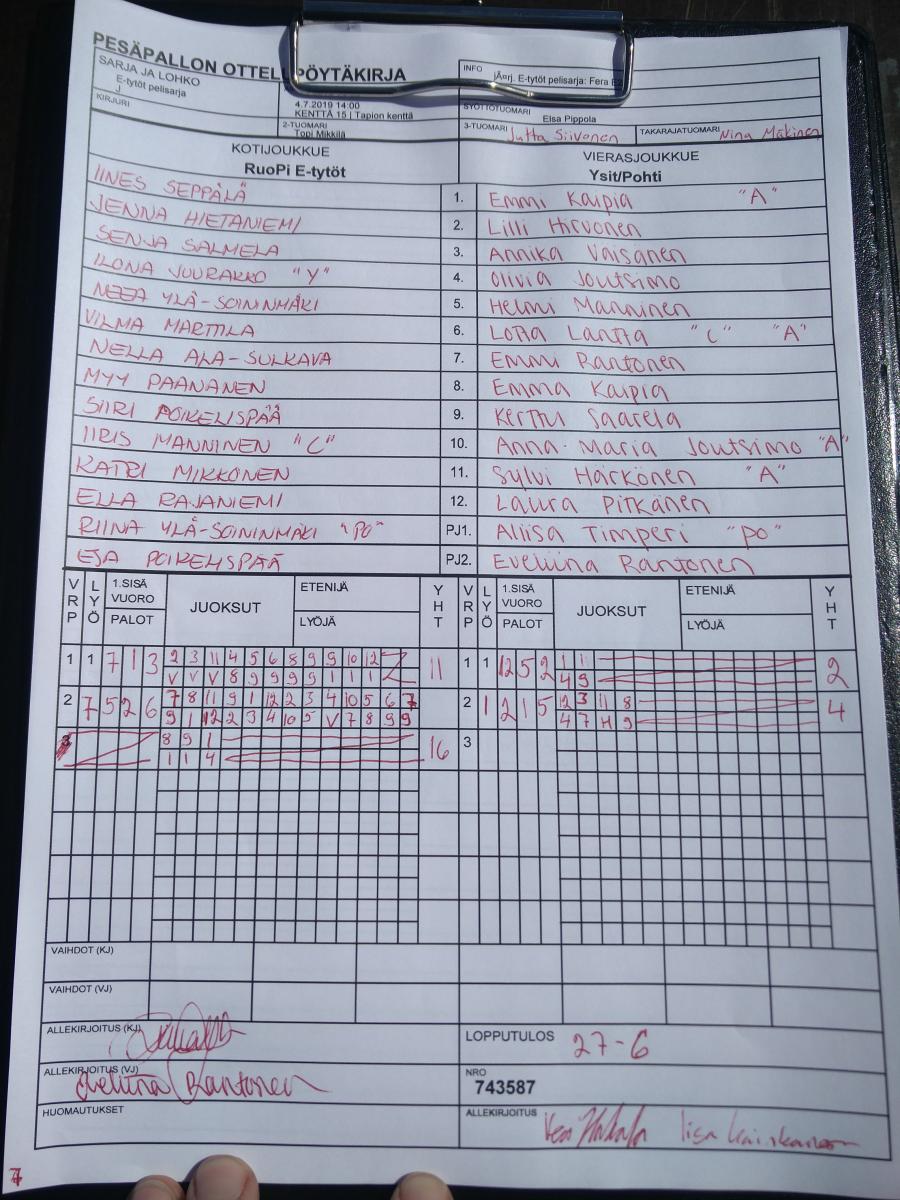 PESÄPALLON OTTELUPÖYTÄKIRJA
SARJA JA LOHKO
E-tytöt pelisarja
J
4.7.2019 14:00
KENTTÄ 15 | Tapion kenttä
INFO
jÄ¤rj. E-tytöt pelisarja: Fera
KIRJURI
2-TUOMARI
Topi Mikkilä
SYÖTTÖTUOMARI
Elsa Pippola
3-TUOMARI Jutta Siivonen
TAKARAJATUOMARI Nina Mäkinen
KOTIJOUKKUE
RuoPi E-tytöt
VIERASJOUKKUE
Ysit/Pohti
IINES SEPPÄLÄ 1. Emmi Kaipia "A"
JENNA HIETANIEMI 2. Lilli Hirvonen
SENJA SALMELA 3. Annika Väisänen
ILONA VUURAKKO "Y" 4. Olivia Joutsimo
NEEA YLÄ-SOININMÄKI 5. Helmi Manninen
VILMA MARTTILA 6. Lotta Lantta "C" "A"
NELLA ALA-SULKAVA 7. Emmi Rantonen
MYY PAANANEN 8. Emma Kaipia
SIIRI POIKELISPÄÄ 9. Kerttu Saarela
IIRIS MANNINEN "C" 10. Anna-Maria Joutsimo "A"
KATRI MIKKONEN 11. Sylvi Härkönen "A"
ELLA RAJANIEMI 12. Laura Pitkänen
RIINA YLÄ-SOININMÄKI "PO" PJ1. Aliisa Timperi "PO"
ESA POIKELISPÄÄ PJ2. Eveliina Rantonen
VRP LYÖ 1.SISÄ VUORO PALOT JUOKSUT ETENIJÄ LYÖJÄ YHT
VRP LYÖ 1.SISÄ VUORO PALOT JUOKSUT ETENIJÄ LYÖJÄ YHT
1 1 7 1 3 2 3 11 4 5 6 8 9 9 10 12 11
V V V 8 9 9 9 9 1 1 1
1 1 12 5 2 1 1 2
4 9
2 7 5 2 6 7 8 11 9 1 12 2 3 4 10 5 6 7
9 1 12 2 3 4 10 5 V 7 8 9 9
2 1 2 1 5 12 3 11 8 4
4 7 H 9
3 8 9 1 16
1 1 4
3
VAIHDOT (KJ)
VAIHDOT (VJ)
ALLEKIRJOITUS (KJ)
LOPPUTULOS 27-6
ALLEKIRJOITUS (VJ) Eveliina Rantonen
NRO
743587
HUOMAUTUKSET
ALLEKIRJOITUS